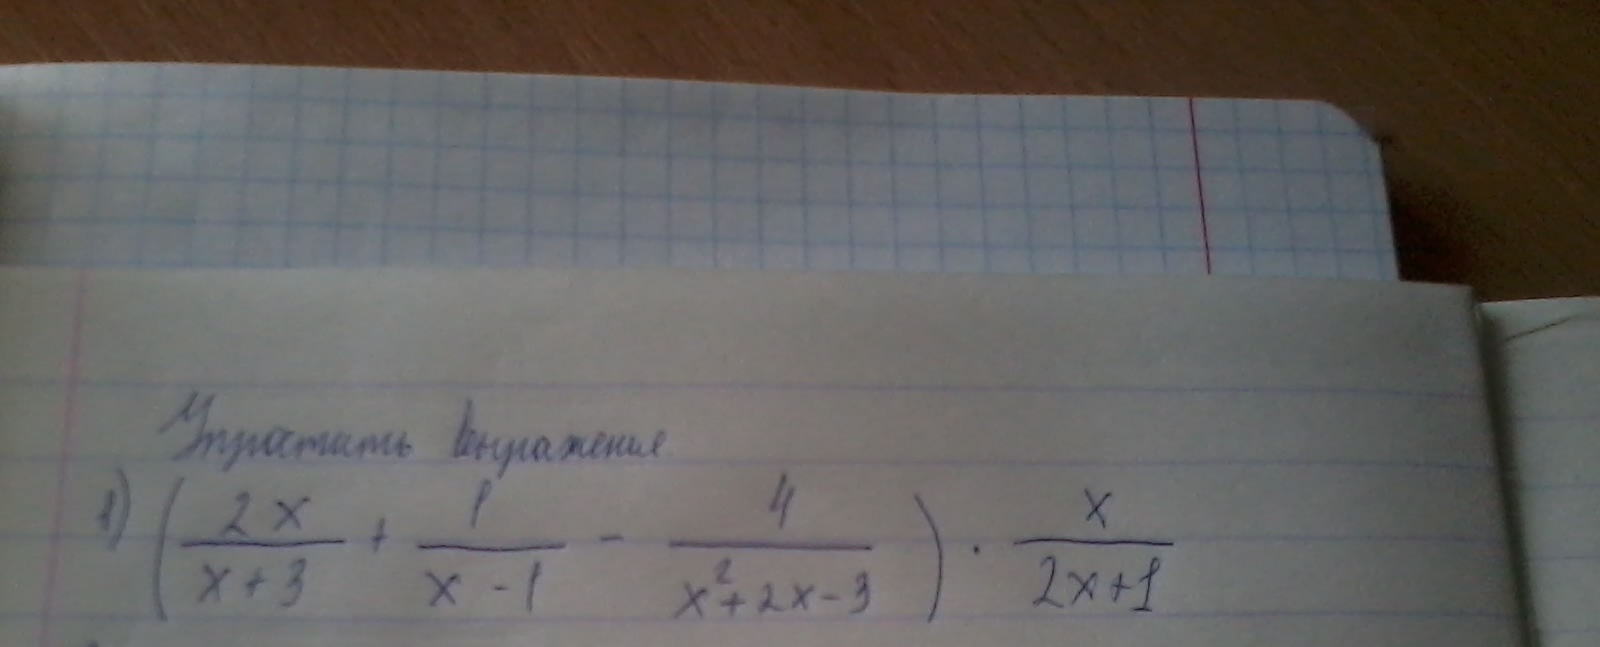 Упростить выражения
1) (2x/(x+3) + 1/(x-1) - 4/(x²+2x-3)) · x/(2x+1)